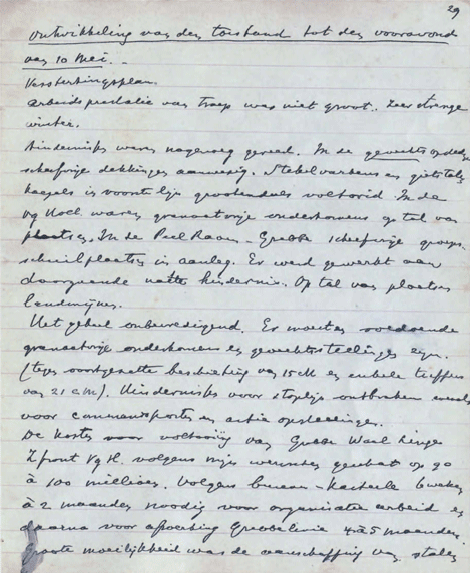 29
Ontwikkeling van den toestand tot den vooravond
van 10 Mei. -
Versterkingsplan.
Arbeidsprestatie van troep was niet groot. Zeer strenge
winter.
Hindernissen waren nagenoeg gereed. In de gevechtsopst
scherfvrije dekkingen aanwezig. Stekelvarkens en gietstalen
koepels in voorste lijn grootendeels voltooid. In de
Vg Holl. waren granaatvrije onderkomens op tal van
plaatsen. In de Peel Raam - Grebbe scherfvrije groeps
schuilplaatsen in aanleg. Er werd gewerkt aan
doorgaande natte hindernis. Op tal van plaatsen
landmijnen.
Het geheel onbevredigend. Er moesten voldoende
granaatvrije onderkomens en gevechtsstellingen zijn.
(tegen voortgezette beschieting van 15 cM en enkele treffers
van 21 cM). Hindernissen voor stoplijn ontbraken evenals
voor commandoposten en artie opstellingen.
De kosten voor voltooiing van Grebbe Waal Linge
Z front Vg H. volgens mijn wenschen geschat op 90
à 100 millioen. Volgens bureau - 6 weken
à 2 maanden noodig voor organisatie arbeid en
daarna voor afwerking Grebbelinie 4 à 5 maanden.
Groote moeilijkheid was de aanschaffing van stalen